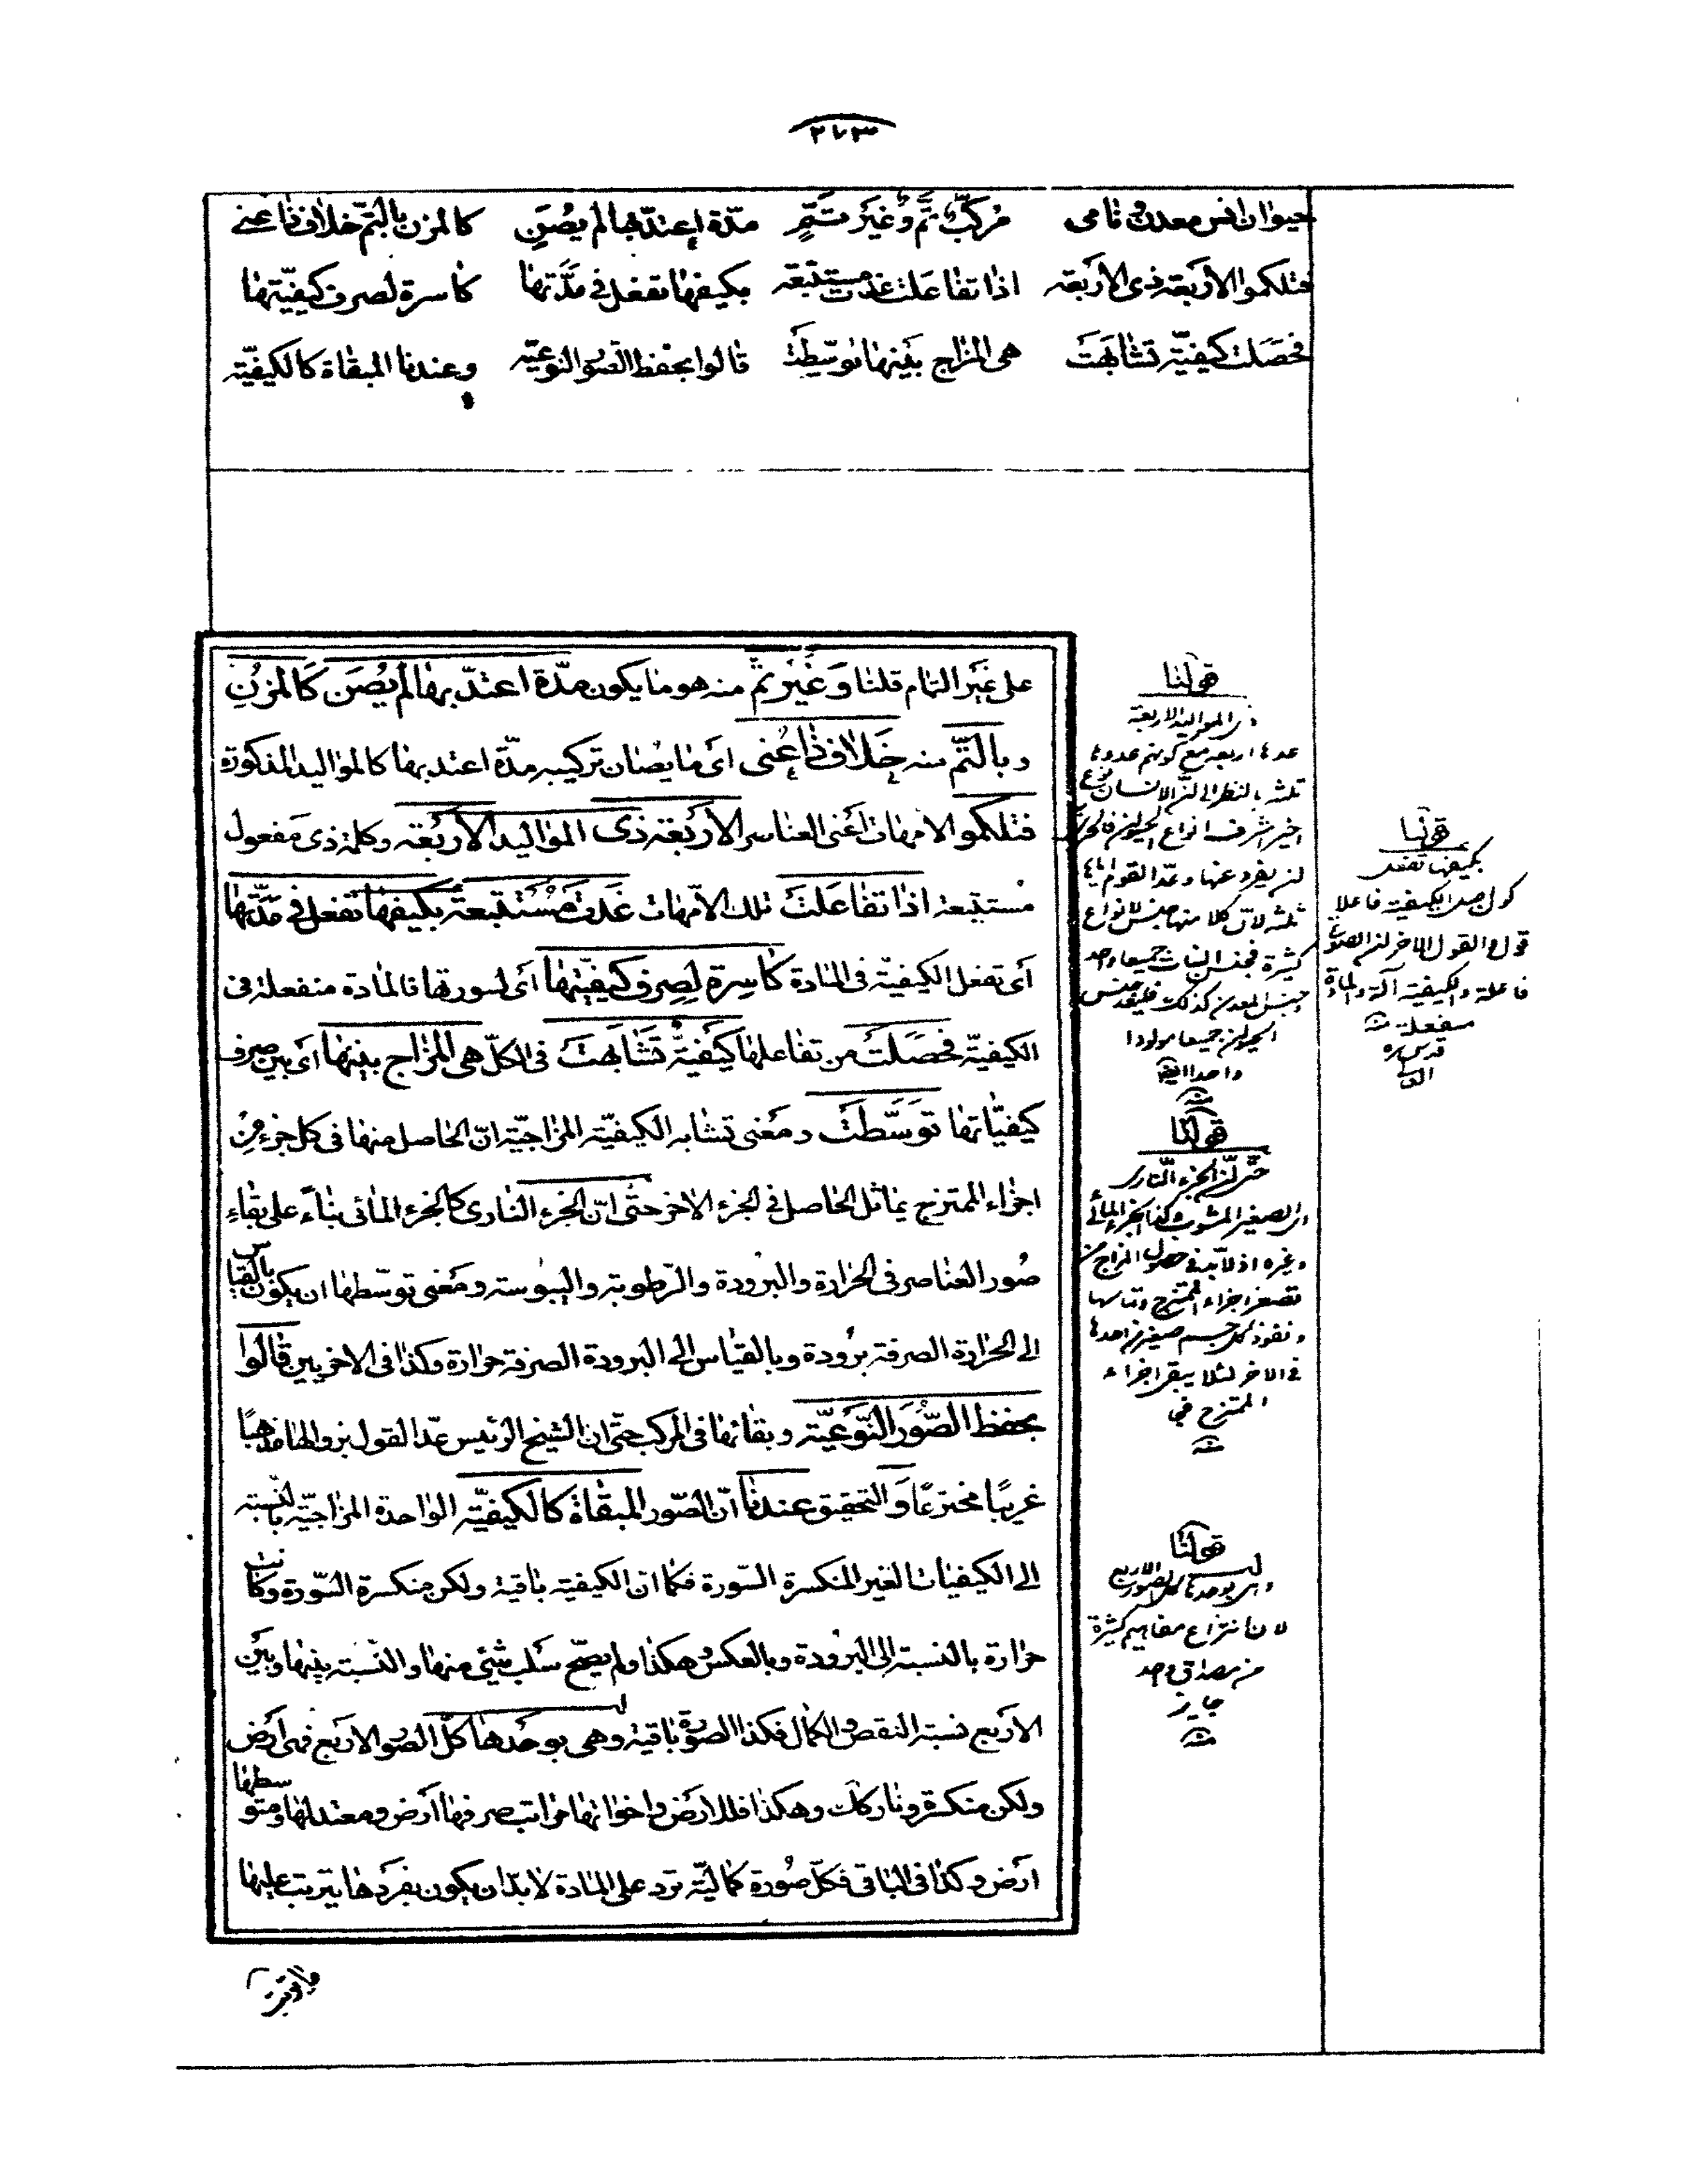 ٢٧٣
حيوان انس معدن و نامى مركب تم وغير تتم مدة اعتد بها لم يصن كالمزن بالتم خلاف ذا عنى
فتلكموا الاربعة ذى الاربعة اذا تفاعلت غدت مستتبعة بكيفها تفعل فى مادتها كاسرة لصرف كيفيتها
فحصلت كيفية تشابهت هى المزاج بينها توسطت قالوا بحفظ الصور النوعية وعندنا المبقاة كالكيفية
على غير التام قلنا وَغَير تمّ منه هو ما يكون مدّة اعتدّ بها لم يُصَن كَالمزُنِ
وبالتّم منه خلاف ذا عُنى اى ما يصان تركيبه مدّة اعتد بها كالمواليد المذكورة
فتلكموا الامهات اعنى العناصر الاربعة ذى المواليد الاربعة وكلمة ذى مفعول
مستتبعة اذا تفاعلت تلك الامّهات غدت مستتبعة بكيفها تفعل فى مادّتها
اى تفعل الكيفيّة فى المادة كاسرة لِصِرف كيفيّتها اى لسورتها فالمادة منفعلة فى
الكيفيّة فحصَلَت من تفاعلها كيفيّة تشابهت فى الكلّ هى المزاج بينها اى بين صرف
كيفيّاتها توسّطت ومعنى تشابه الكيفيّة المزاجيّة انّ الحاصل منها فى كل جزء من
اجزاء الممتزج يماثل الحاصل فى الجزء الاخر حتى انّ الجزء النارى كالجزء المائى بناءً على بقاء
صُور العناصر فى الحرارة والبرودة والرّطوبة واليبوسة ومعنى توسّطها ان يكون بالقياس
الى الحرارة الصرفة برودة وبالقياس الى البرودة الصرفة حرارة وكذا فى الاخريين قالوا
بحفظ الصّور النّوعيّة وبقائها فى المركب حتى ان الشيخ الرئيس عدّ القول بزوالها مذهبًا
غريبًا مخترعًا وَالتحقيق عندنا انّ الصّور المبقاة كالكيفيّة الواحدة المزاجيّة بالنسبة
الى الكيفيات الغير المنكسرة السّورة فكما ان الكيفية باقية ولكن منكسرة السّورة وكانت
حرارة بالنسبة الى البرودة وبالعكس وهكذا ولم يصحّ سلب شئ منها والنّسبة بينها وبين
الاربع نسبة النقص والكمال فكذا الصورة باقية وهى بوحدها كلّ الصور الاربع فهى ارض
ولكن منكسرة ونار كذلك وهكذا فللارض واخواتها مراتب صرفها ارض ومعتدلها ومتوسطها
ارض وكذا فى الباقى فكلّ صُورة كماليّة ترد على المادة لا بدّ ان يكون بفردها يترتب عليها
قولنا
ذى المواليد الاربعة
عدها اربعة مع كونهم عدوها
ثلثة بالنظر الى ان الانسان نوع
اخير اشرف انواع الحيوان فالحرى
ان يفرد عنها وعد القوم اياها
ثلثة لان كلا منها جنس لانواع
كثيرة فجنس النبات جميعا واحد
وجنس المعدن كذلك فليعد جنس
الحيوان جميعا مولودا
واحدا ايضا
منه
قولنا
حتى ان الجزء النارى
اى الصغير المشوب وكذا الجزء المائى
وغيره اذ لا بد فى حصول المزاج من
تصغر اجزاء الممتزج وتماسها
ونفوذ كل جسم صغير من احدها
فى الاخر لئلا يبقى اجزاء
الممتزج
منه
قولنا
وهى بوحدها كل الصور الاربع
لان انتزاع مفاهيم كثيرة
من مصداق واحد
جايز
منه
قولنا
بكيفها تفعل
كون اصل الكيفية فاعلا
قول والقول الاخر ان الصورة
فاعلة والكيفية آلة والمادة
منفعلة منه
قدس سره